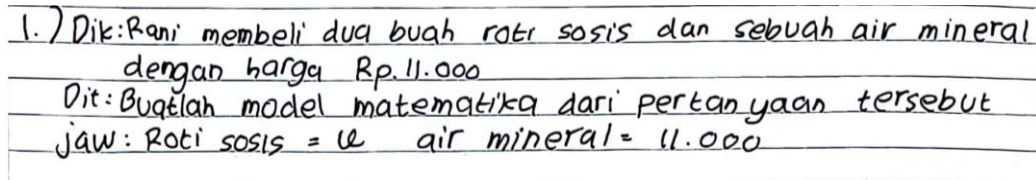 1.) Dik: Rani membeli dua buah roti sosis dan sebuah air mineral
dengan harga Rp. 11.000
Dit: Buatlah model matematika dari pertanyaan tersebut
jaw: Roti sosis = air mineral = 11.000